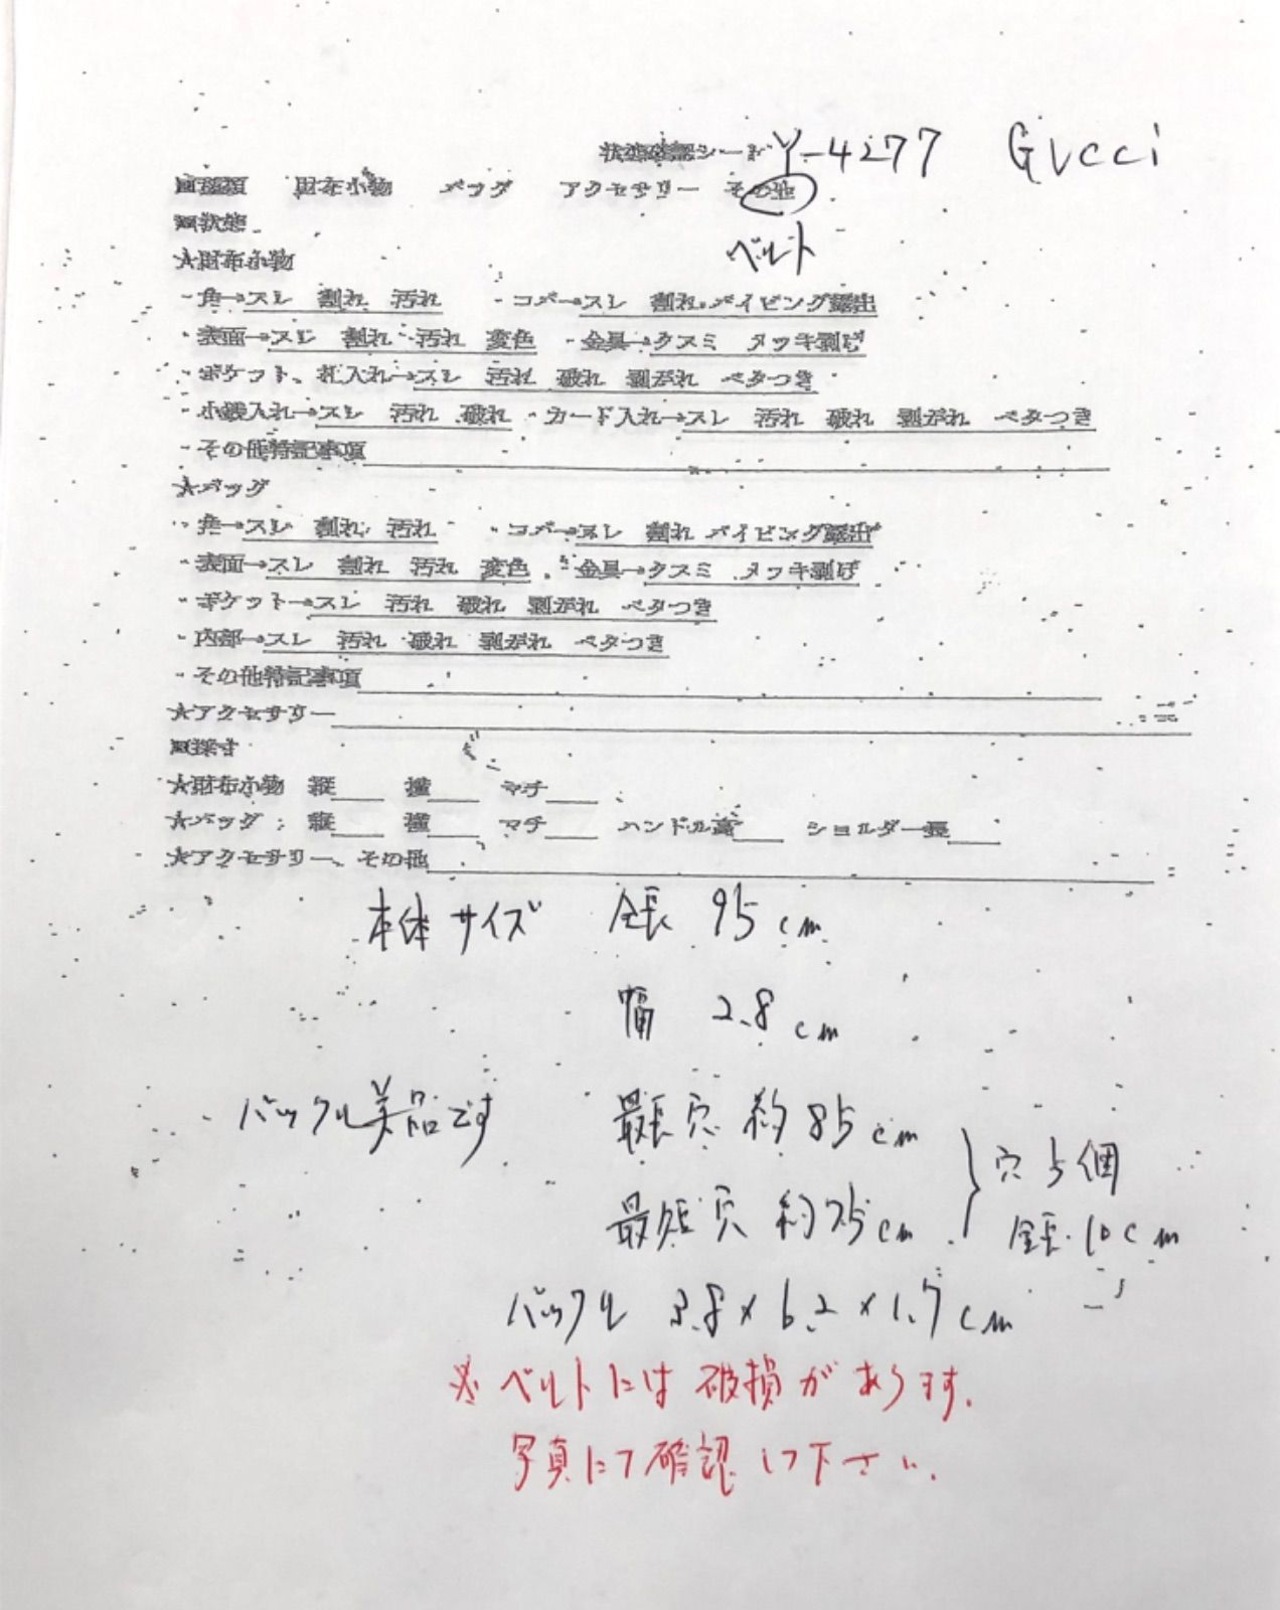 状態確認シート Y-4277 Gucci
■種類 財布小物 バッグ アクセサリー その他
■状態
ベルト
★財布小物
・角→スレ 割れ 汚れ ・コバ→スレ 割れ パイピング露出
・表面→スレ 割れ 汚れ 変色 ・金具→クスミ メッキ剥げ
・ポケット、札入れ→スレ 汚れ 破れ 剥がれ ベタつき
・小銭入れ→スレ 汚れ 破れ ・カード入れ→スレ 汚れ 破れ 剥がれ ベタつき
・その他特記事項
★バッグ
・角→スレ 割れ 汚れ ・コバ→スレ 割れ パイピング露出
・表面→スレ 割れ 汚れ 変色 ・金具→クスミ メッキ剥げ
・ポケット→スレ 汚れ 破れ 剥がれ ベタつき
・内部→スレ 汚れ 破れ 剥がれ ベタつき
・その他特記事項
★アクセサリー
■採寸
★財布小物 縦 横 マチ
★バッグ 縦 横 マチ ハンドル高 ショルダー長
★アクセサリー、その他
本体サイズ 全長 95cm
幅 2.8cm
バックル美品です 最長穴 約85cm
穴5個
最短穴 約75cm 全長10cm
バックル 3.8×6.2×1.7cm
※ベルトには破損があります。
写真にて確認して下さい。